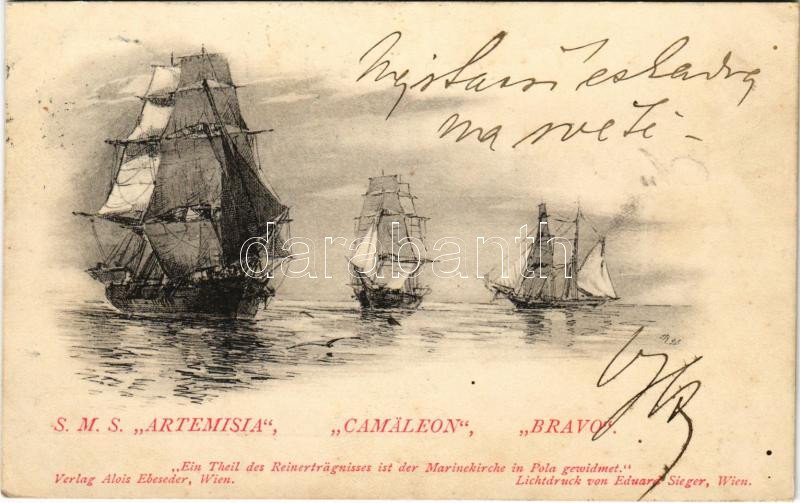 eskadra
na světě -
darabanth
S. M. S. „ARTEMISIA“, „CAMÄLEON“, „BRAVO“.
„Ein Theil des Reinerträgnisses ist der Marinekirche in Pola gewidmet.“
Verlag Alois Ebeseder, Wien. Lichtdruck von Eduard Sieger, Wien.